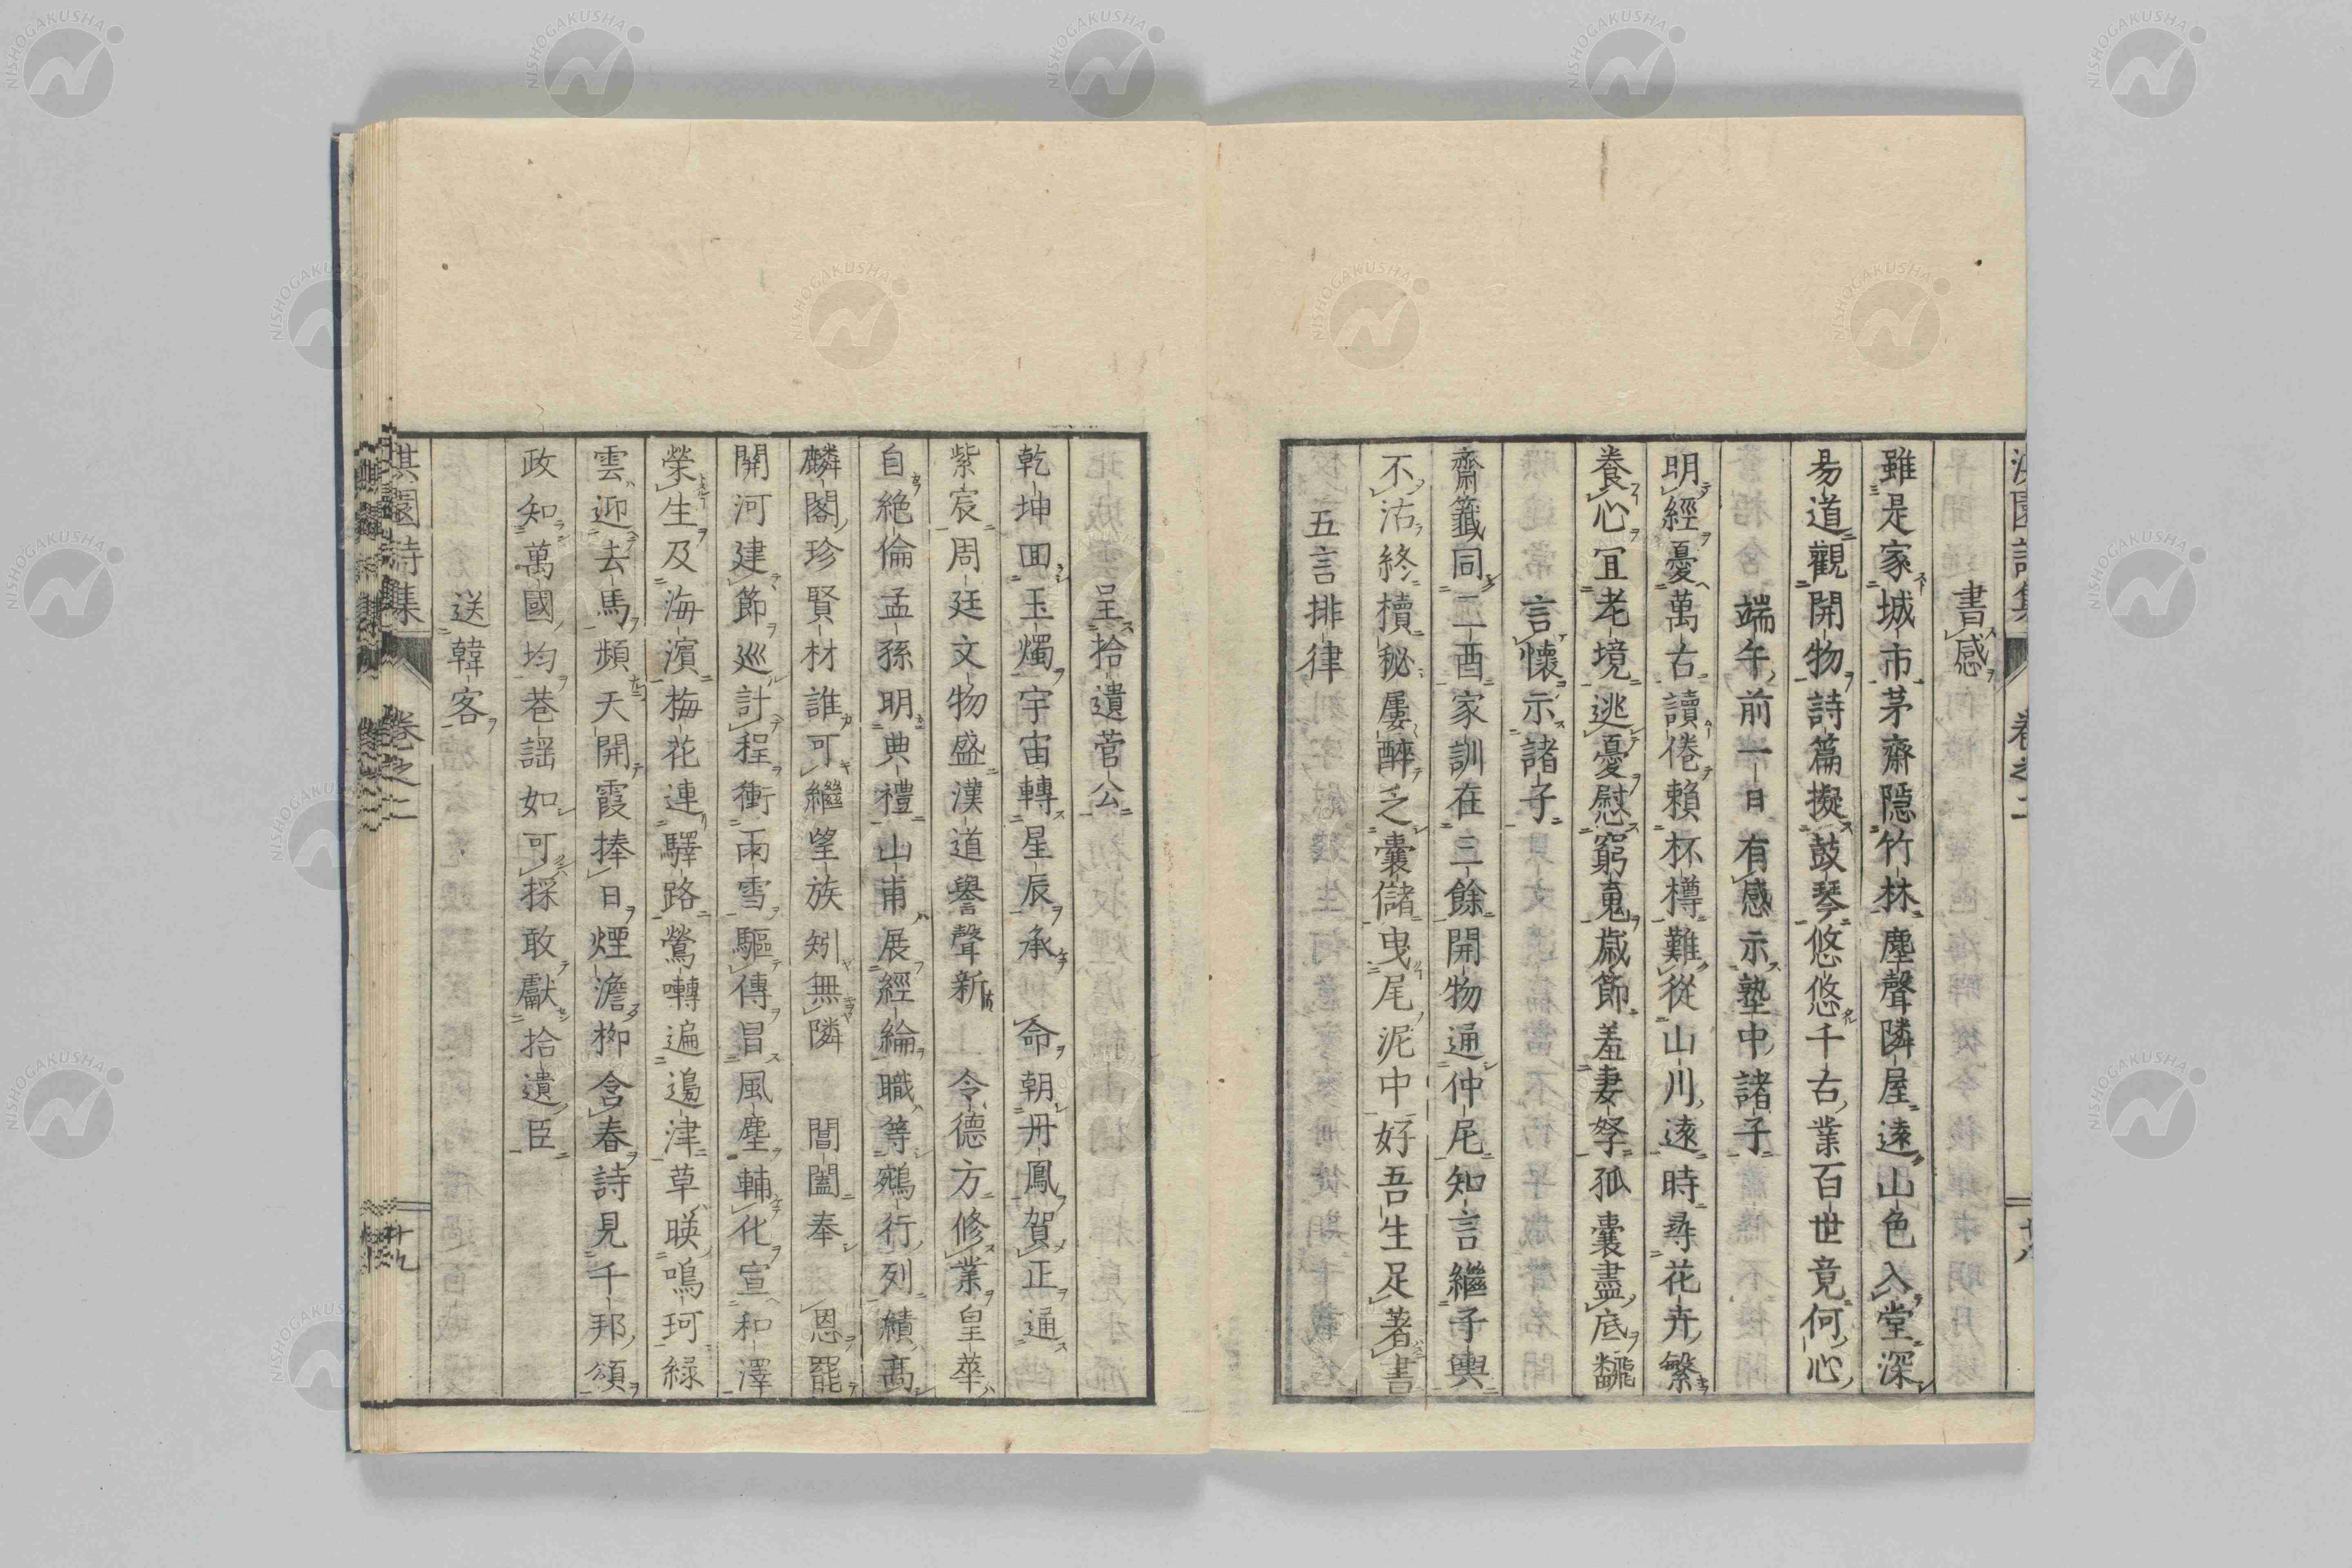 書感
雖是家城市茅齋隠竹林塵聲隣屋遠山色入堂深
易道觀開物詩篇擬鼓琴悠悠千古業百世竟何心
端午前一日有感示塾中諸子
明經憂萬古讀倦賴杯樽難從山川遠時尋花卉繁
養心冝老境逃憂慰窮䰟歳節羞妻孥狐囊盡底飜
言懷示諸子
齋籤同二酉家訓在三餘開物通仲尼知言繼子輿
不沽終櫝秘屢醉乏囊儲曳尾泥中好吾生足著書
五言排律
呈拾遺菅公
乾坤回玉燭宇宙轉星辰承 命朝丹鳳賀正通
紫宸周廷文物盛漢道譽聲新 令德方修業皇華
自絶倫孟孫明典禮山甫展經綸職等鵷行列績髙
麟閣珍賢材誰可繼望族矧無隣 閶闔奉 恩罷
關河建節巡計程衝雨雪驅傳冒風塵輔化宣和澤
榮生及海濵梅花連驛路鶯囀遍邉津草暎鳴珂緑
雲迎去馬頻天開霞捧日煙澹柳含春詩見千邦頌
政知萬國均巷謡如可採敢獻拾遺臣
送韓客
淇園詩集 卷之二 十九